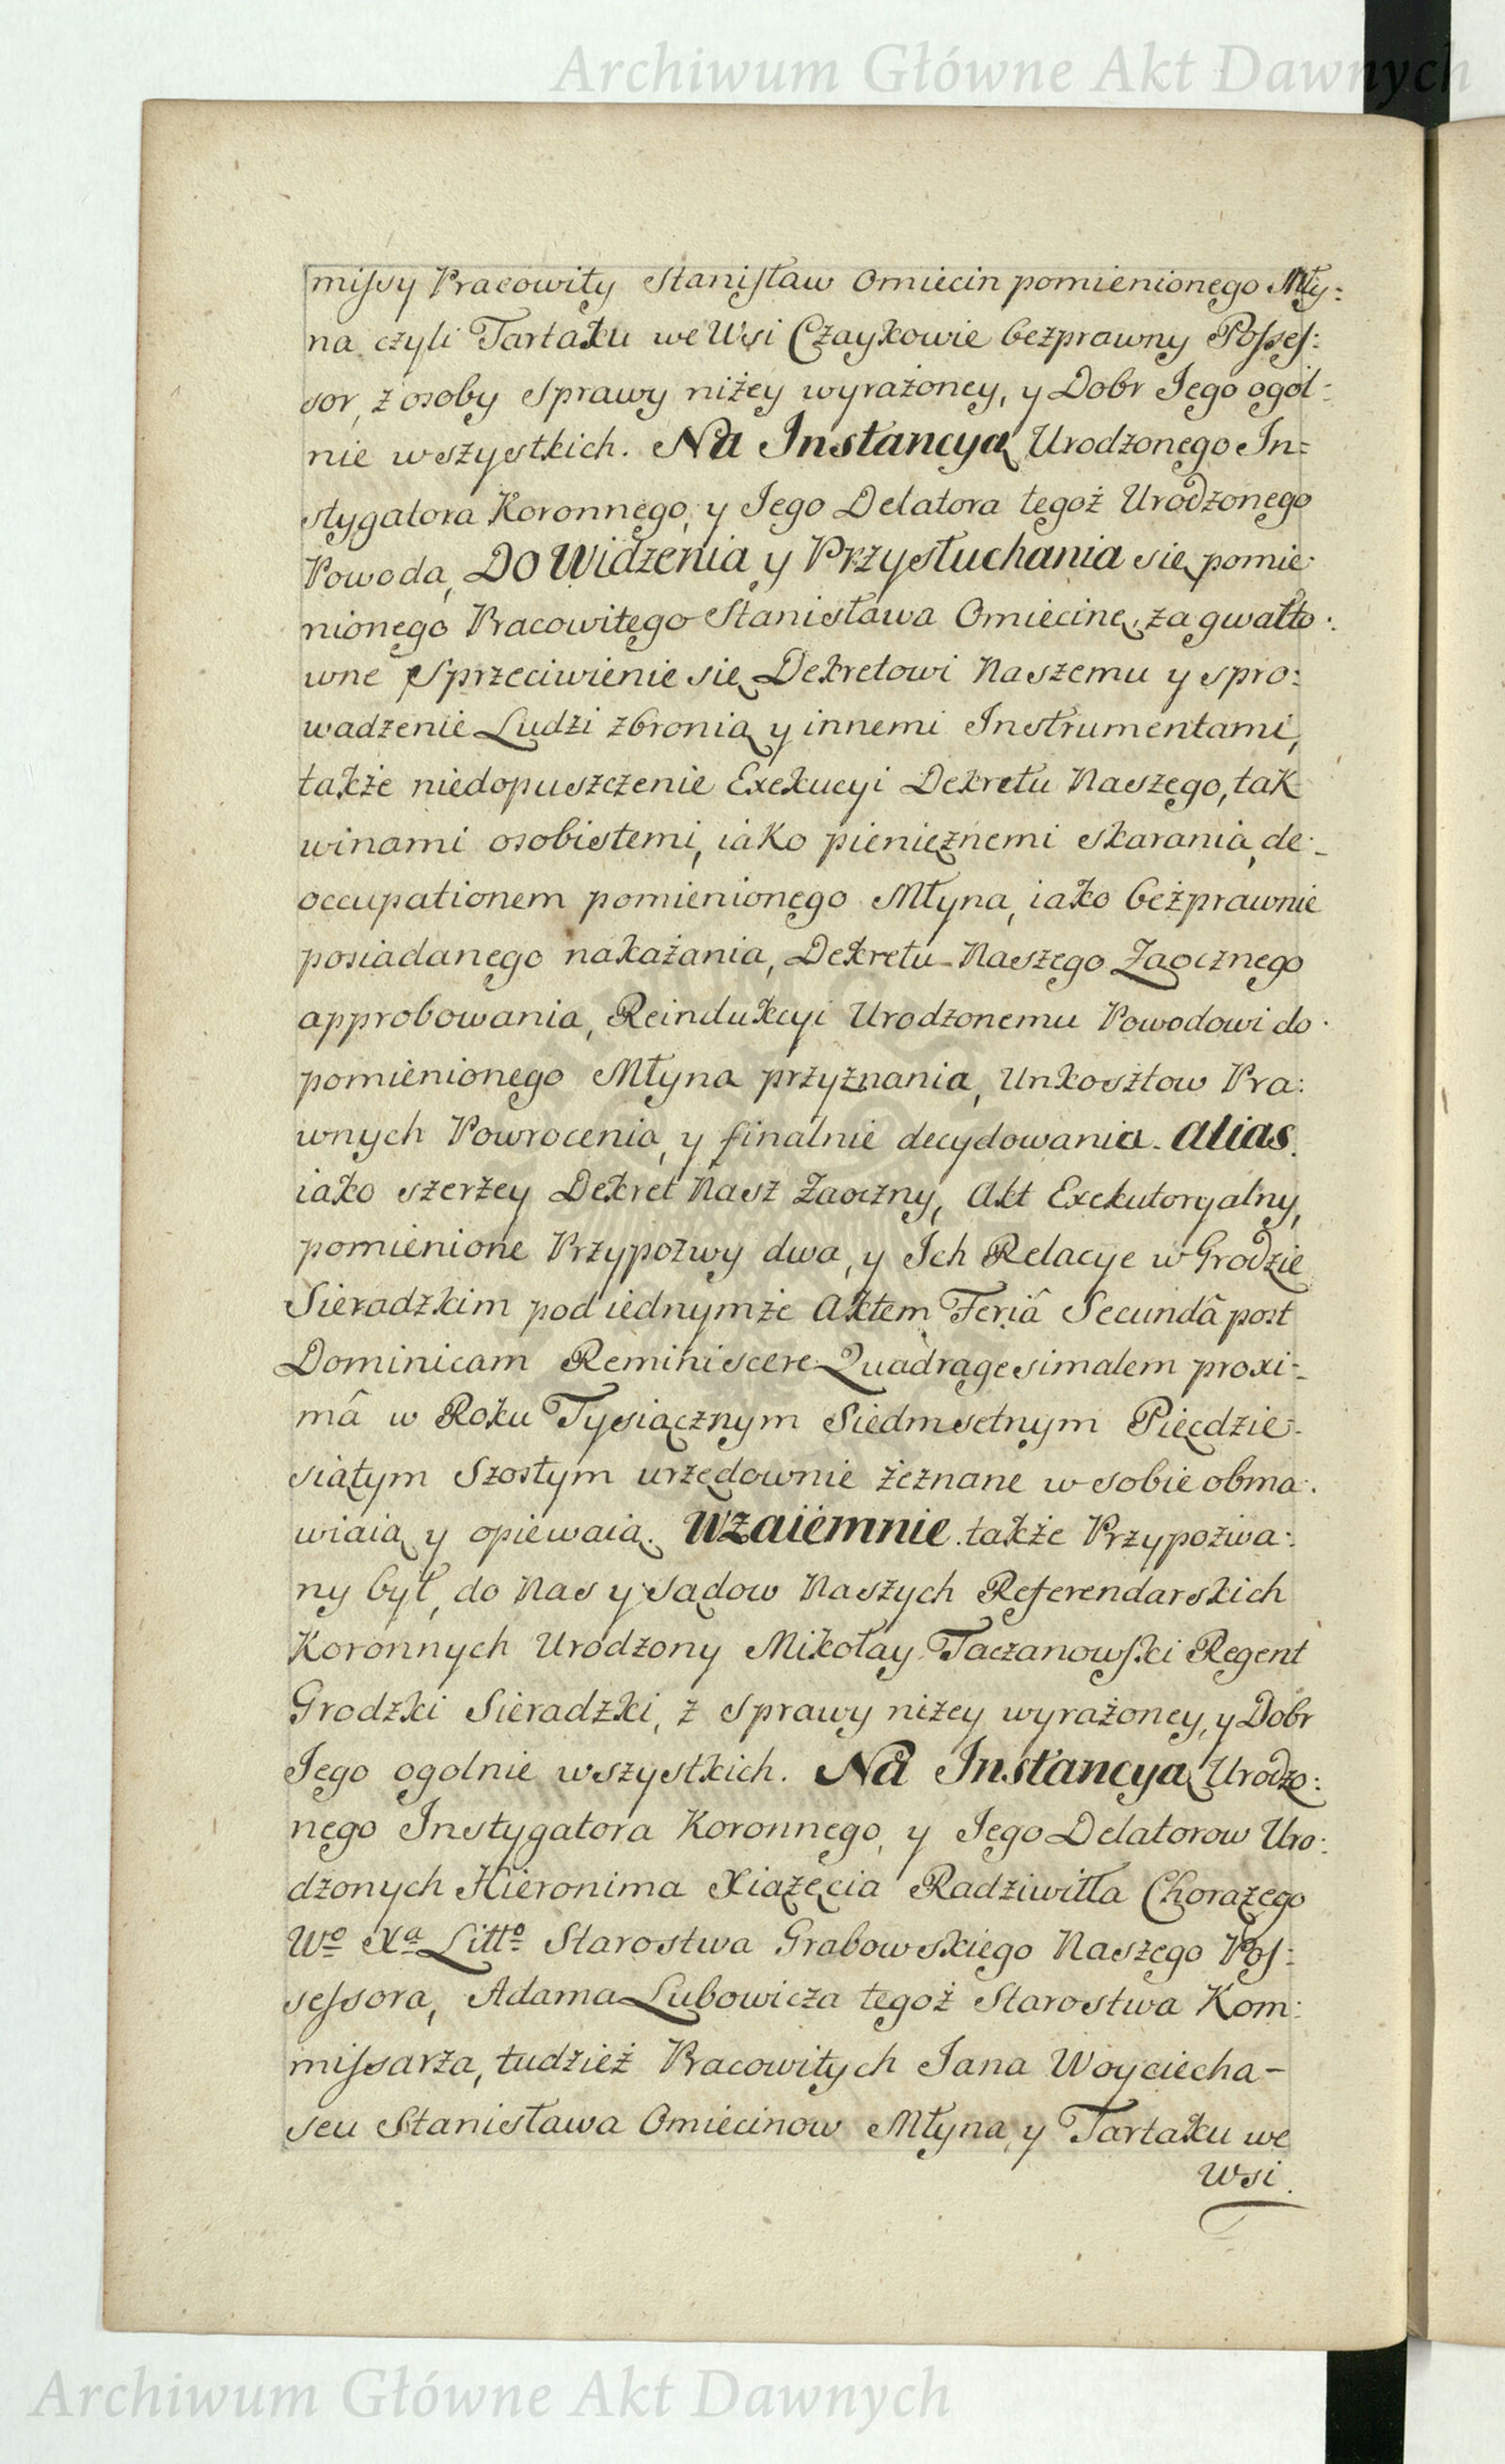 Archiwum Główne Akt Dawnych
missy Pracowity Stanisław Omiecin pomienionego Mły:
na czyli Tartaku we Wsi Czaykowie bezprawny Posses:
sor, z osoby sprawy niżey wyrażoney, y Dobr Jego ogól:
nie wszystkich. Na Instancyą Urodzonego In=
stygatora Koronnego, y Jego Delatora tegoż Urodzonego
Powoda, Do Widzenia y Przysłuchania się pomie:
nionego Pracowitego Stanisława Omiecinę, za gwałto:
wne Sprzeciwienie się Dekretowi Naszemu y spro:
wadzenie Ludzi zbronią y innemi Instrumentami,
także niedopuszczenie Exekucyi Dekretu Naszego, tak
winami osobistemi, iako pieniężnemi skarania, de:
occupationem pomienionego Młyna, iako bezprawnie
posiadanego nakażania, Dekretu Naszego Zaocznego
approbowania, Reindukcyi Urodzonemu Powodowi do
pomienionego Młyna przyznania, Unkosztow Pra:
wnych Powrocenia, y finalnie decydowania. Alias
iako szerzey Dekret Nasz Zaoczny, Akt Exekutoryalny,
pomienione Przypozwy dwa, y Ich Relacye w Grodzie
Sieradzkim pod iednymże Aktem Feriâ Secundâ post
Dominicam Reminiscere Quadragesimalem proxi:
mâ w Roku Tysiącznym Siedmsetnym Pięcdzie:
siątym Szostym urzędownie zeznane w sobie obma:
wiaią y opiewaią. Wzaiemnie także Przypozwa:
ny był, do Nas y sądow Naszych Referendarskich
Koronnych Urodzony Mikołay Taczanowski Regent
Grodzki Sieradzki, z sprawy niżey wyrażoney, y Dobr
Jego ogolnie wszystkich. Na Instancyą Urodzo:
nego Instygatora Koronnego, y Jego Delatorow Uro:
dzonych Hieronima Xiążęcia Radziwiłła Chorążego
Wo Xa Litto Starostwa Grabowskiego Naszego Pos:
sessora, Adama Lubowicza tegoż Starostwa Kom:
missarza, tudzież Pracowitych Jana Woyciecha-
seu Stanisława Omiecinow Młyna y Tartaku we
Wsi.
Archiwum Główne Akt Dawnych